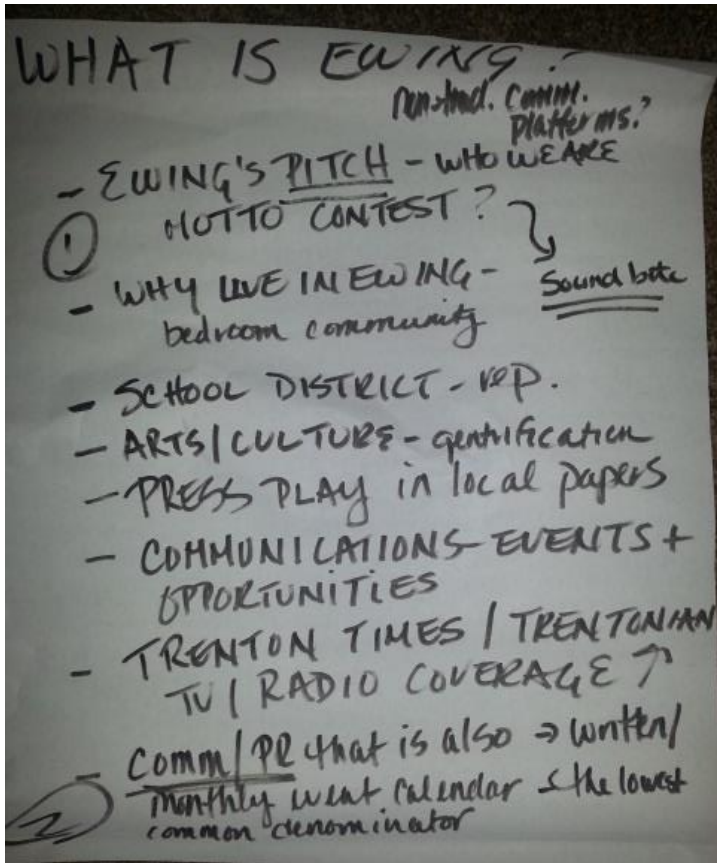 WHAT IS EWING?
nontrad. Comm.
platforms?
- EWING'S PITCH - WHO WE ARE
① MOTTO CONTEST?
- WHY LIVE IN EWING -
Sound bite
bedroom community
- SCHOOL DISTRICT - rep.
- ARTS/CULTURE - gentrification
- PRESS PLAY in local papers
- COMMUNICATIONS - EVENTS +
OPPORTUNITIES
- TRENTON TIMES / TRENTONIAN
TV / RADIO COVERAGE ↑
- Comm/PR that is also → written/
② monthly event calendar & the lowest
common denominator